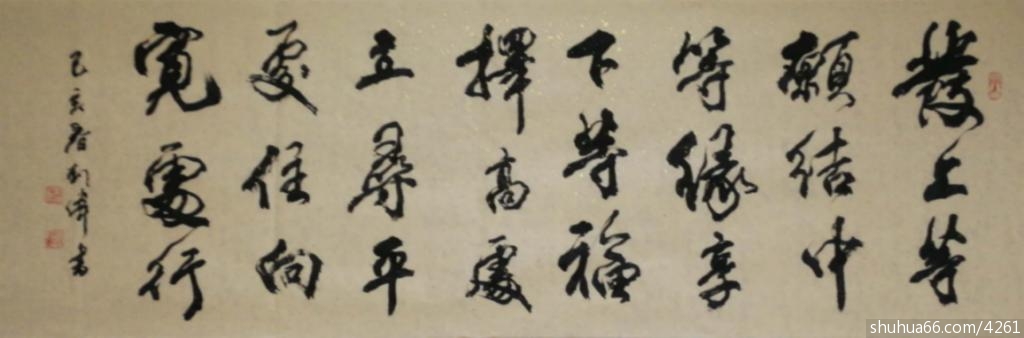 發上等
願結中
等緣享
下等福
擇高處
立尋平
處住向
寬處行
己亥春劉
書
shuhua66.com/4261